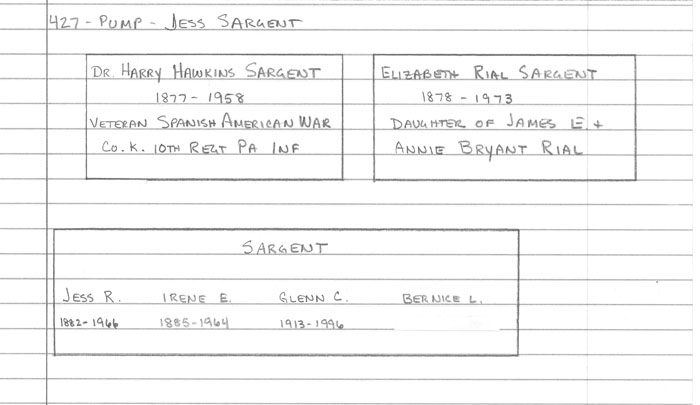 427 - PUMP - JESS SARGENT
DR. HARRY HAWKINS SARGENT
1877 - 1958
VETERAN SPANISH AMERICAN WAR
CO. K. 10TH REGT PA INF
ELIZABETH RIAL SARGENT
1878 - 1973
DAUGHTER OF JAMES E +
ANNIE BRYANT RIAL
SARGENT
JESS R. IRENE E. GLENN C. BERNICE L.
1882-1966 1885-1964 1913-1996